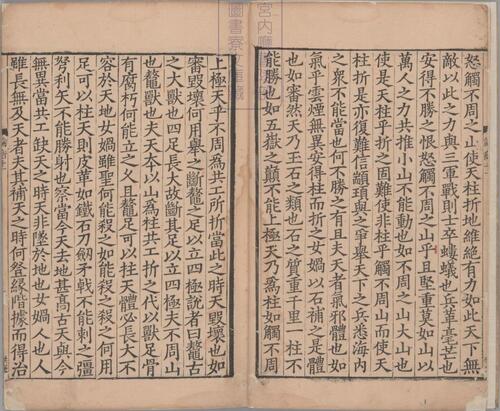 怒觸不周之山使天柱折地維絕有力如此天下無
敵以此之力與三軍戰則士卒螻蟻也兵革毫芒也
安得不勝之恨怒觸不周之山乎且堅重莫如山以
萬人之力共推小山不能動也如不周之山大山也
使是天柱乎折之固難使非柱乎觸不周山而使天
柱折是亦復難信顓頊與之爭舉天下之兵悉海內
之衆不能當也何不勝之有且夫天者氣邪體也如
氣乎雲煙無異安得柱而折之女媧以石補之是體
也如審然天乃玉石之類也石之質重千里一柱不
能勝也如五嶽之巔不能上極天乃爲柱如觸不周
上極天乎不周爲共工所折當此之時天毀壞也如
審毀壞何用舉之斷鼇之足以立四極說者曰鼇古
之大獸也四足長大故斷其足以立四極夫不周山
也鼇獸也夫天本以山爲柱共工折之代以獸足骨
有腐朽何能立之久且鼇足可以柱天體必長大不
容於天地女媧雖聖何能殺之如能殺之殺之何用
足可以柱天則皮革如鐵石刀劒矛戟不能刺之彊
弩利矢不能勝射也察當今天去地甚高古天與今
無異當共工缺天之時天非墜於地也女媧人也人
雖長無及天者夫其補天之時何登緣階據而得治
宮內廳
圖書寮文庫